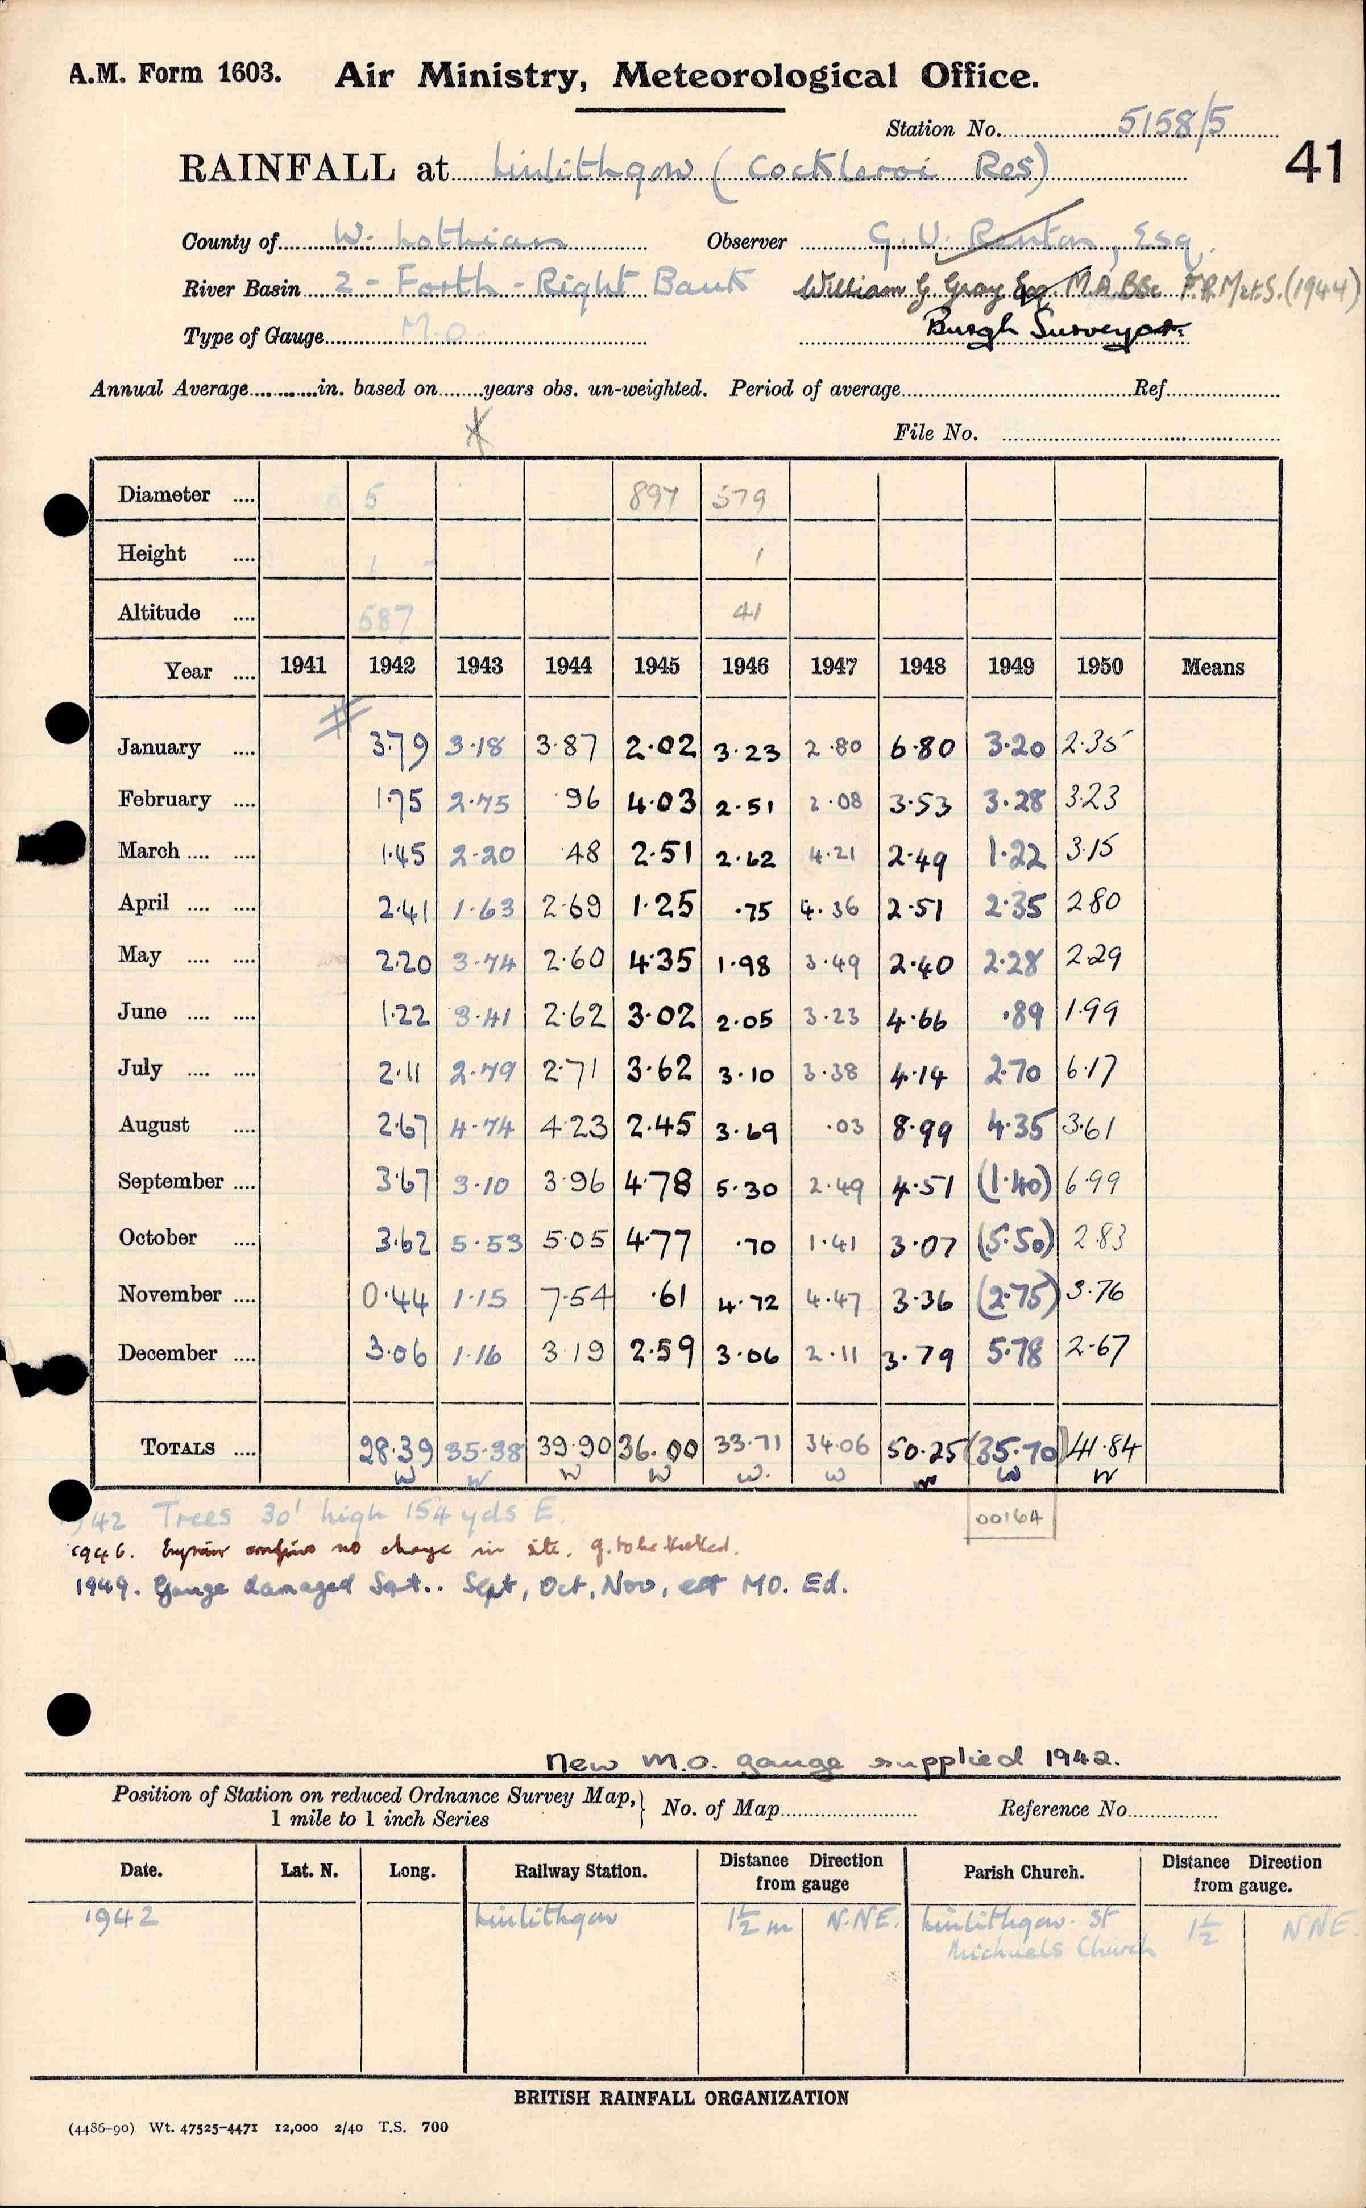 A.M. Form 1603. Air Ministry, Meteorological Office.
Station No. 5158/5
41
RAINFALL at Linlithgow (Cockleroi Res)
County of W. Lothian Observer G. V. Renton, Esq.
River Basin 2 - Forth - Right Bank William G. Gray Esq. M.A. BSc F.R.Met.S. (1944)
Type of Gauge M.O. Burgh Surveyor.
Annual Average in. based on years obs. un-weighted. Period of average Ref
File No.
Diameter 5 897 579
Height 1 - 1
Altitude 587 41
Year 1941 1942 1943 1944 1945 1946 1947 1948 1949 1950 Means
January 3.79 3.18 3.87 2.02 3.23 2.80 6.80 3.20 2.35
February 1.75 2.75 .96 4.03 2.51 2.08 3.53 3.28 3.23
March 1.45 2.20 .48 2.51 2.62 4.21 2.49 1.22 3.15
April 2.41 1.63 2.69 1.25 .75 4.36 2.51 2.35 2.80
May 2.20 3.74 2.60 4.35 1.98 3.49 2.40 2.28 2.29
June 1.22 3.41 2.62 3.02 2.05 3.23 4.66 .89 1.99
July 2.11 2.79 2.71 3.62 3.10 3.38 4.14 2.70 6.17
August 2.67 4.74 4.23 2.45 3.69 .03 8.99 4.35 3.61
September 3.67 3.10 3.96 4.78 5.30 2.49 4.51 (1.40) 6.99
October 3.62 5.53 5.05 4.77 .70 1.41 3.07 (5.50) 2.83
November 0.44 1.15 7.54 .61 4.72 4.47 3.36 (2.75) 3.76
December 3.06 1.16 3.19 2.59 3.06 2.11 3.79 5.78 2.67
TOTALS 28.39 35.38 39.90 36.00 33.71 34.06 50.25 (35.70) 41.84
W W W W W. W W W W
00164
1942 Trees 30' high 154 yds E.
1946. no change in site. g. to be
1949. Gauge damaged Sept.. Sept, Oct, Nov, est MO. Ed.
New M.O. gauge supplied 1942.
Position of Station on reduced Ordnance Survey Map, 1 mile to 1 inch Series } No. of Map Reference No.
Date. Lat. N. Long. Railway Station. Distance Direction from gauge Parish Church. Distance Direction from gauge.
1942 Linlithgow 1½ m N.NE. Linlithgow. St Michaels Church 1½ NNE.
BRITISH RAINFALL ORGANIZATION
(4486-90) Wt. 47525-4471 12,000 2/40 T.S. 700